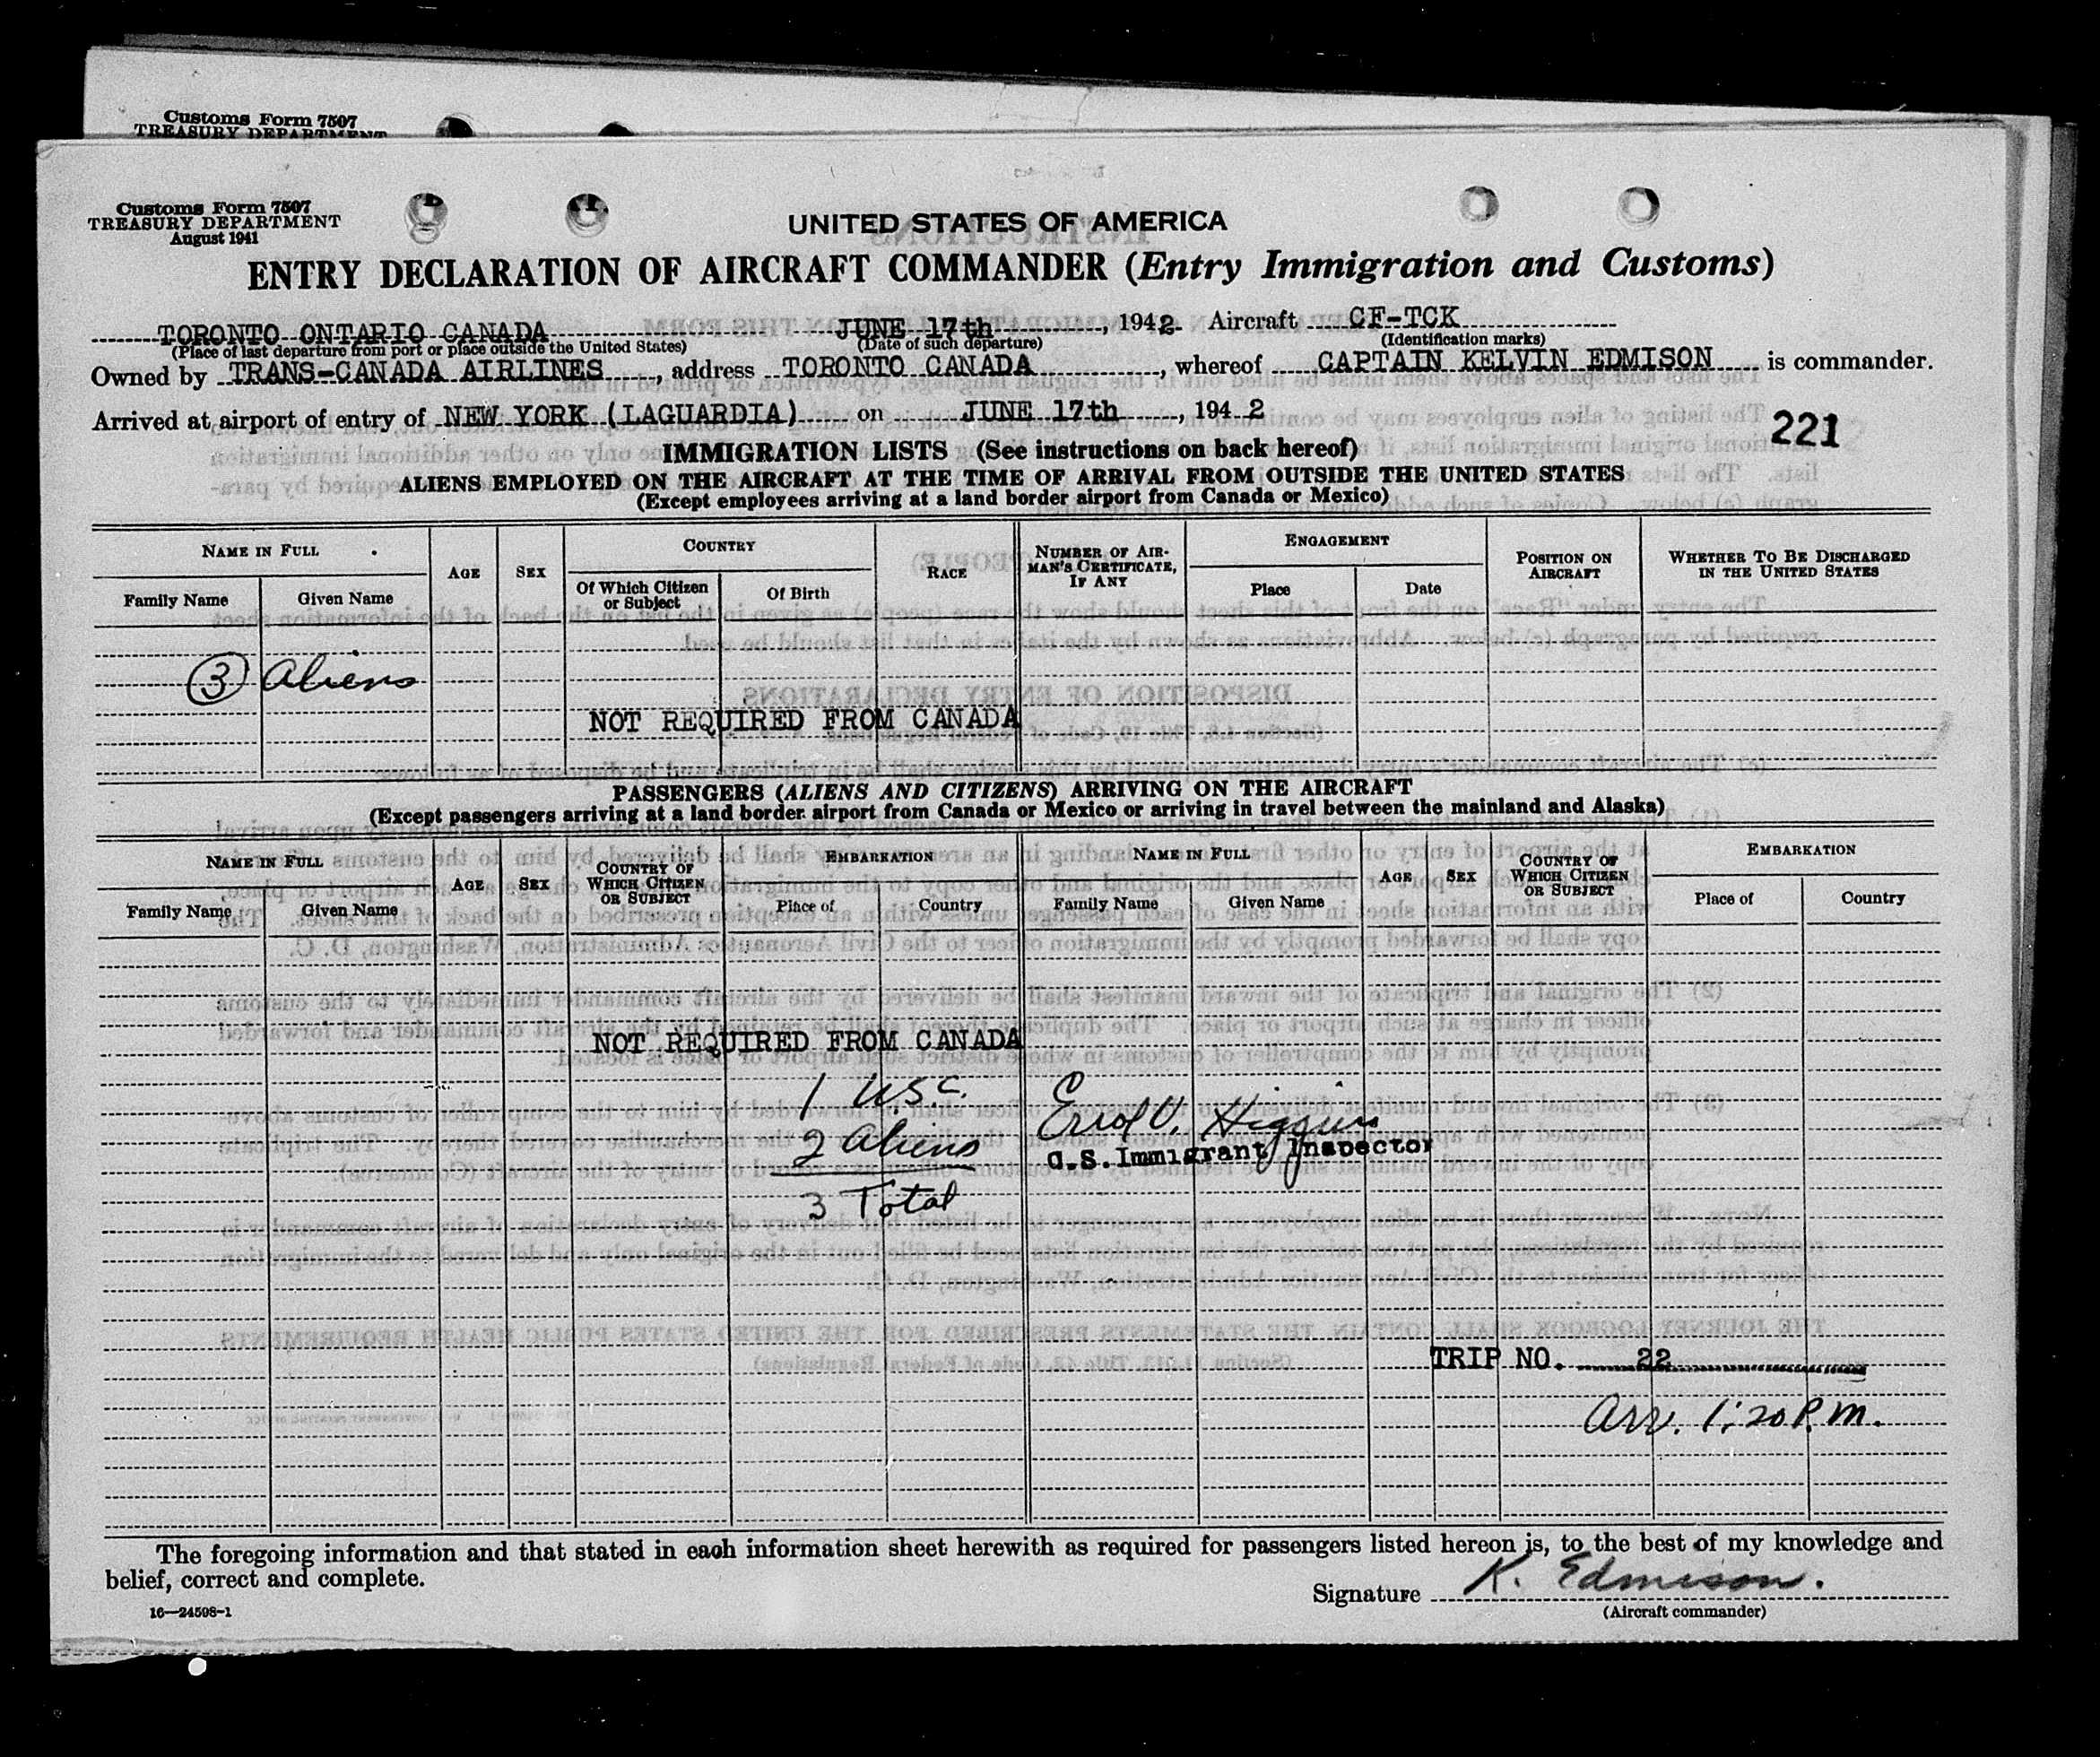 Customs Form 7507
TREASURY DEPARTMENT
Customs Form 7507
TREASURY DEPARTMENT
August 1941
UNITED STATES OF AMERICA
ENTRY DECLARATION OF AIRCRAFT COMMANDER (Entry Immigration and Customs)
TORONTO ONTARIO CANADA JUNE 17th, 1942. Aircraft CF-TCK
(Place of last departure from port or place outside the United States) (Date of such departure) (Identification marks)
Owned by TRANS-CANADA AIRLINES, address TORONTO CANADA, whereof CAPTAIN KELVIN EDMISON is commander.
Arrived at airport of entry of NEW YORK (LAGUARDIA) on JUNE 17th, 1942
221
IMMIGRATION LISTS (See instructions on back hereof)
ALIENS EMPLOYED ON THE AIRCRAFT AT THE TIME OF ARRIVAL FROM OUTSIDE THE UNITED STATES
(Except employees arriving at a land border airport from Canada or Mexico)
NAME IN FULL AGE SEX COUNTRY RACE NUMBER OF AIRMAN'S CERTIFICATE, IF ANY ENGAGEMENT POSITION ON AIRCRAFT WHETHER TO BE DISCHARGED IN THE UNITED STATES
Family Name Given Name Of Which Citizen or Subject Of Birth Place Date
3 Aliens
NOT REQUIRED FROM CANADA
PASSENGERS (ALIENS AND CITIZENS) ARRIVING ON THE AIRCRAFT
(Except passengers arriving at a land border airport from Canada or Mexico or arriving in travel between the mainland and Alaska)
NAME IN FULL AGE SEX COUNTRY OF WHICH CITIZEN OR SUBJECT EMBARKATION NAME IN FULL AGE SEX COUNTRY OF WHICH CITIZEN OR SUBJECT EMBARKATION
Family Name Given Name Place of Country Family Name Given Name Place of Country
NOT REQUIRED FROM CANADA
1 U.S.C.
2 Aliens
3 Total
Errol V. Higgins
U.S. Immigrant Inspector
TRIP NO. 22
Arr. 1:20 P.M.
The foregoing information and that stated in each information sheet herewith as required for passengers listed hereon is, to the best of my knowledge and
belief, correct and complete.
Signature K. Edmison.
(Aircraft commander)
16—24598-1